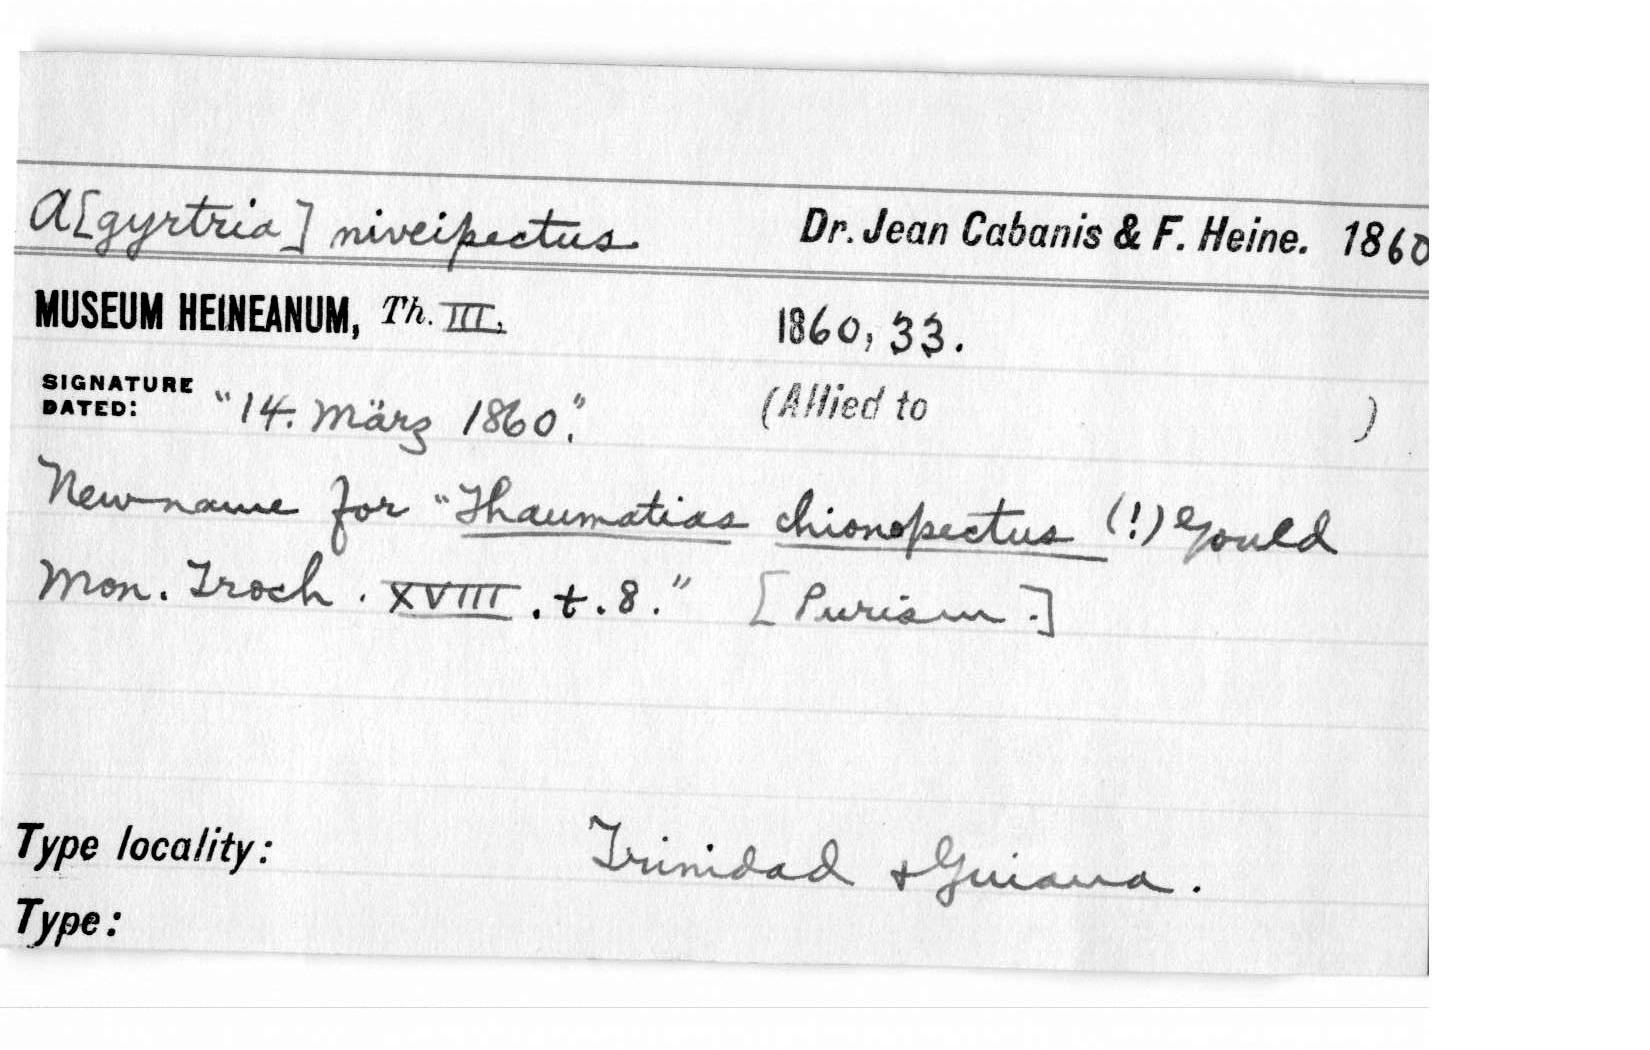 A[gyrtria] niveipectus Dr. Jean Cabanis & F. Heine. 1860
MUSEUM HEINEANUM, Th. III. 1860, 33.
SIGNATURE
DATED: "14. März 1860". (Allied to )
New name for "Thaumatias chionopectus (!) Gould
Mon. Troch. XVIII. t. 8." [Purism.]
Type locality: Trinidad & Guiana.
Type: